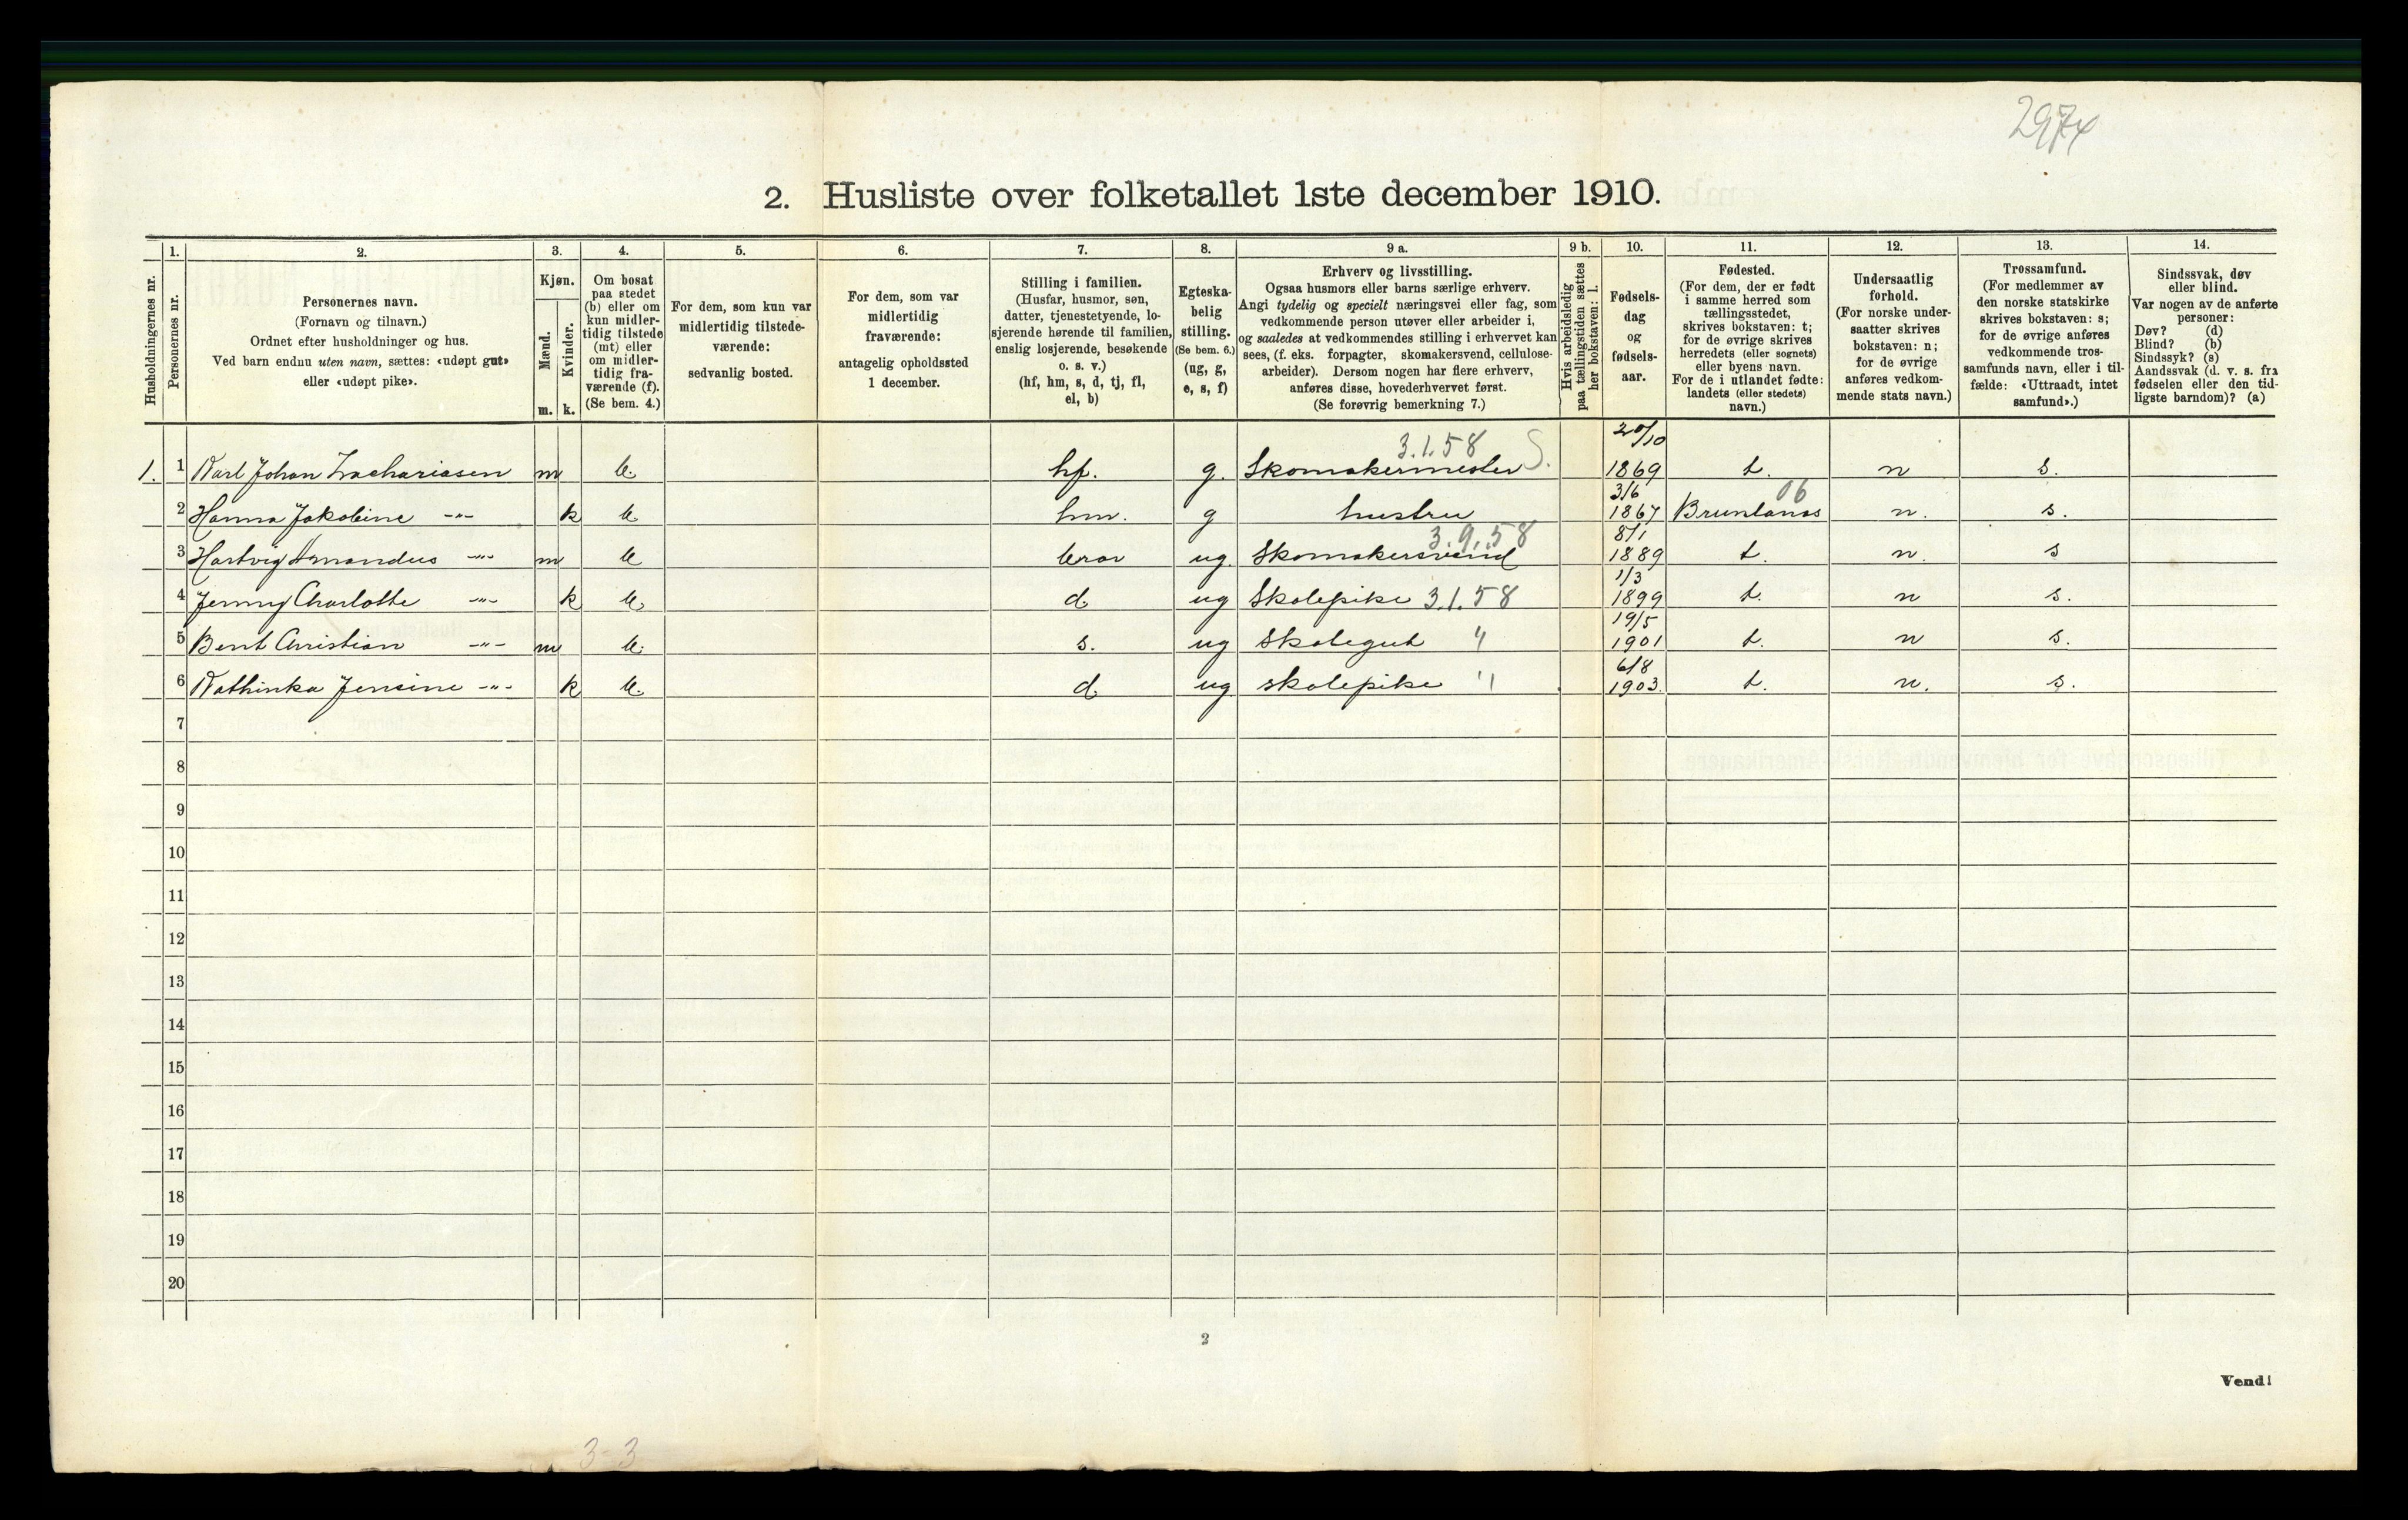 2974
2. Husliste over folketallet 1ste december 1910.
Husholdningernes nr.
1.
Personernes nr.
2.
Personernes navn.
(Fornavn og tilnavn.)
Ordnet efter husholdninger og hus.
Ved barn endnu uten navn, sættes: «udøpt gut»
eller «udøpt pike».
3.
Kjøn.
Mænd. Kvinder.
m. k.
4.
Om bosat
paa stedet
(b) eller om
kun midler-
tidig tilstede
(mt) eller
om midler-
tidig fra-
værende (f).
(Se bem. 4.)
5.
For dem, som kun var
midlertidig tilstede-
værende:
sedvanlig bosted.
6.
For dem, som var
midlertidig
fraværende:
antagelig opholdssted
1 december.
7.
Stilling i familien.
(Husfar, husmor, søn,
datter, tjenestetyende, lo-
sjerende hørende til familien,
enslig losjerende, besøkende
o. s. v.)
(hf, hm, s, d, tj, fl,
el, b)
8.
Egteska-
belig
stilling.
(Se bem. 6.)
(ug, g,
e, s, f)
9 a.
Erhverv og livsstilling.
Ogsaa husmors eller barns særlige erhverv.
Angi tydelig og specielt næringsvei eller fag, som
vedkommende person utøver eller arbeider i,
og saaledes at vedkommendes stilling i erhvervet kan
sees, (f. eks. forpagter, skomakersvend, cellulose-
arbeider). Dersom nogen har flere erhverv,
anføres disse, hovederhvervet først.
(Se forøvrig bemerkning 7.)
9 b.
Hvis arbeidsledig
paa tællingstiden sættes
her bokstaven: l.
10.
Fødsels-
dag
og
fødsels-
aar.
11.
Fødested.
(For dem, der er født
i samme herred som
tællingsstedet,
skrives bokstaven: t;
for de øvrige skrives
herredets (eller sognets)
eller byens navn.
For de i utlandet fødte:
landets (eller stedets)
navn.)
12.
Undersaatlig
forhold.
(For norske under-
saatter skrives
bokstaven: n;
for de øvrige
anføres vedkom-
mende stats navn.)
13.
Trossamfund.
(For medlemmer av
den norske statskirke
skrives bokstaven: s;
for de øvrige anføres
vedkommende tros-
samfunds navn, eller i til-
fælde: «Uttraadt, intet
samfund».)
14.
Sindssvak, døv
eller blind.
Var nogen av de anførte
personer:
Døv? (d)
Blind? (b)
Sindssyk? (s)
Aandssvak (d. v. s. fra
fødselen eller den tid-
ligste barndom)? (a)
3.1.58 S. 20/10
1. 1 Karl Johan Zachariasen m b. hf. g. Skomakermester 1869 t. n s.
3/6 06
2 Hanna Jakobine -"- k b hm. g hustru 1867 Brunlanæs n. s.
3.9.58 8/1
3 Hartvig Amandus -"- m b bror ug. Skomakersvend 1889 t. n. s
1/3
4 Jenny Charlotte -"- k b. d ug Skolepike 3.1.58 1899 t. n s.
19/5
5 Bent Christian -"- m b. s. ug Skolegut " 1901 t. n s.
6/8
6 Kathinka Jensine -"- k b. d ug skolepike " 1903. t. n. s.
7
8
9
10
11
12
13
14
15
16
17
18
19
20
2
Vend!
3-3